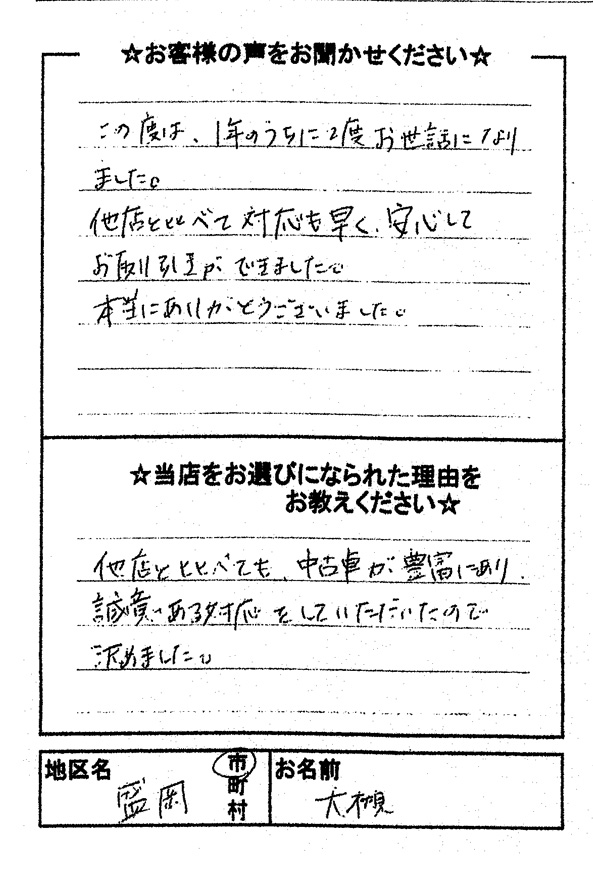 ☆お客様の声をお聞かせください☆
この度は、1年のうちに2度お世話になり
ました。
他店と比べて対応も早く、安心して
お取り引きができました。
本当にありがとうございました。
☆当店をお選びになられた理由を
お教えください☆
他店と比べても、中古車が豊富にあり、
誠意ある対応をしていただいたので
決めました。
地区名 盛岡 市町村 お名前 大槻